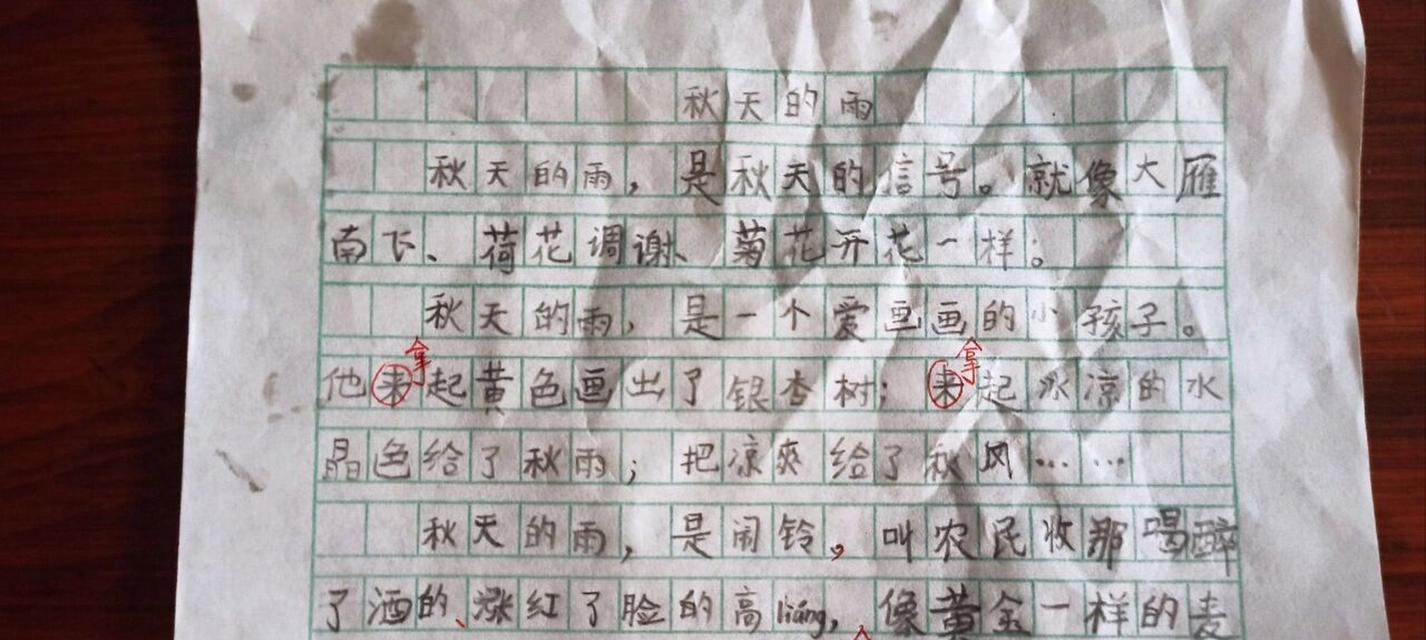 秋天的雨
秋天的雨，是秋天的信号。就像大雁
南飞、荷花调谢、菊花开花一样。
秋天的雨，是一个爱画画的小孩子。
拿 拿
他来起黄色画出了银杏树；来起冰凉的水
晶色给了秋雨；把凉爽给了秋风……
秋天的雨，是闹铃，叫农民收那喝醉
了酒的、涨红了脸的高liáng，像黄金一样的麦